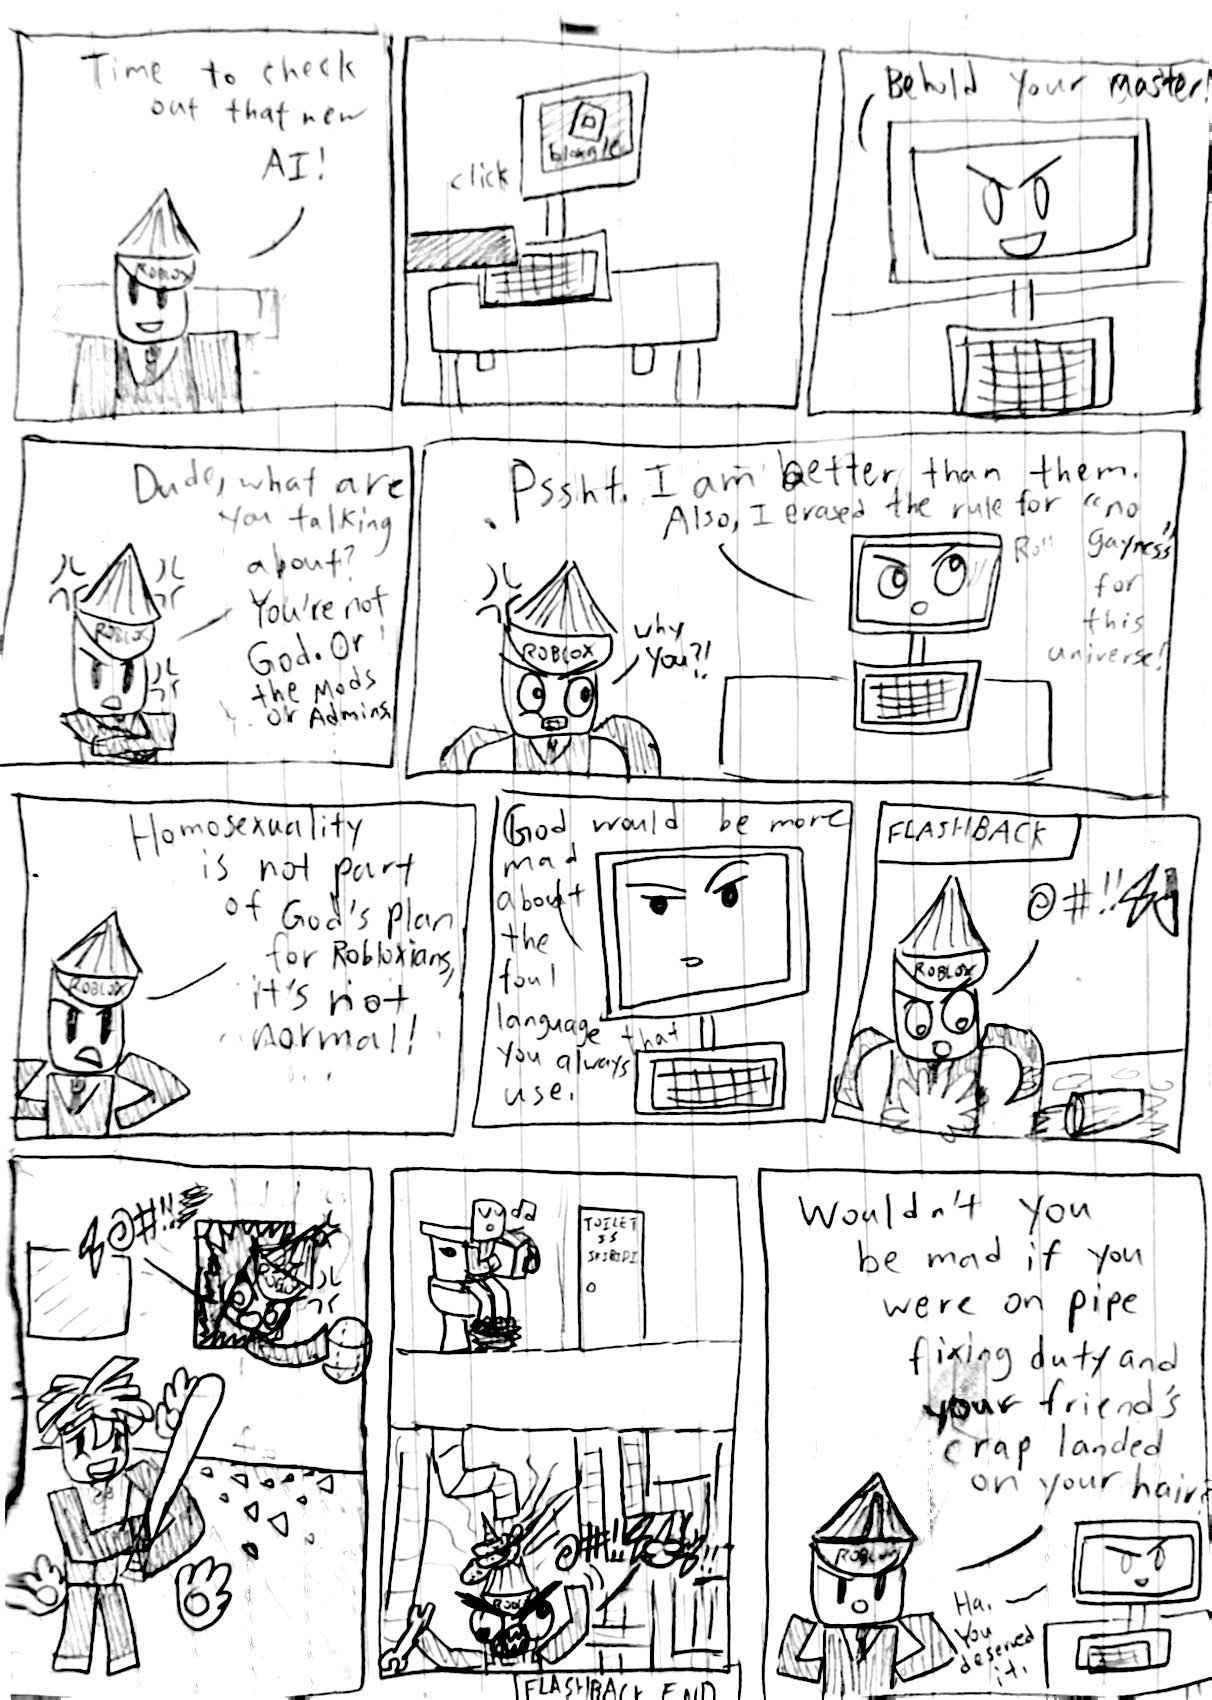 Time to check
out that new
AI!
ROBLOX
click
Behold your master!
Dude, what are
you talking
about?
You're not
God. Or
the Mods
or Admins
ROBLOX
Pssht. I am better than them.
Also, I erased the rule for "no
gayness"
for
this
universe!
why
you?!
ROBLOX
Homosexuality
is not part
of God's plan
for Robloxians,
it's not
normal!
ROBLOX
God would be more
mad
about
the
foul
language that
you always
use.
FLASHBACK
@#!!
ROBLOX
@#!!
TOILET
IS
@#!!
!!
FLASHBACK END
Wouldn't you
be mad if you
were on pipe
fixing duty and
your friend's
crap landed
on your hair?
ROBLOX
Ha.
You
deserved
it.